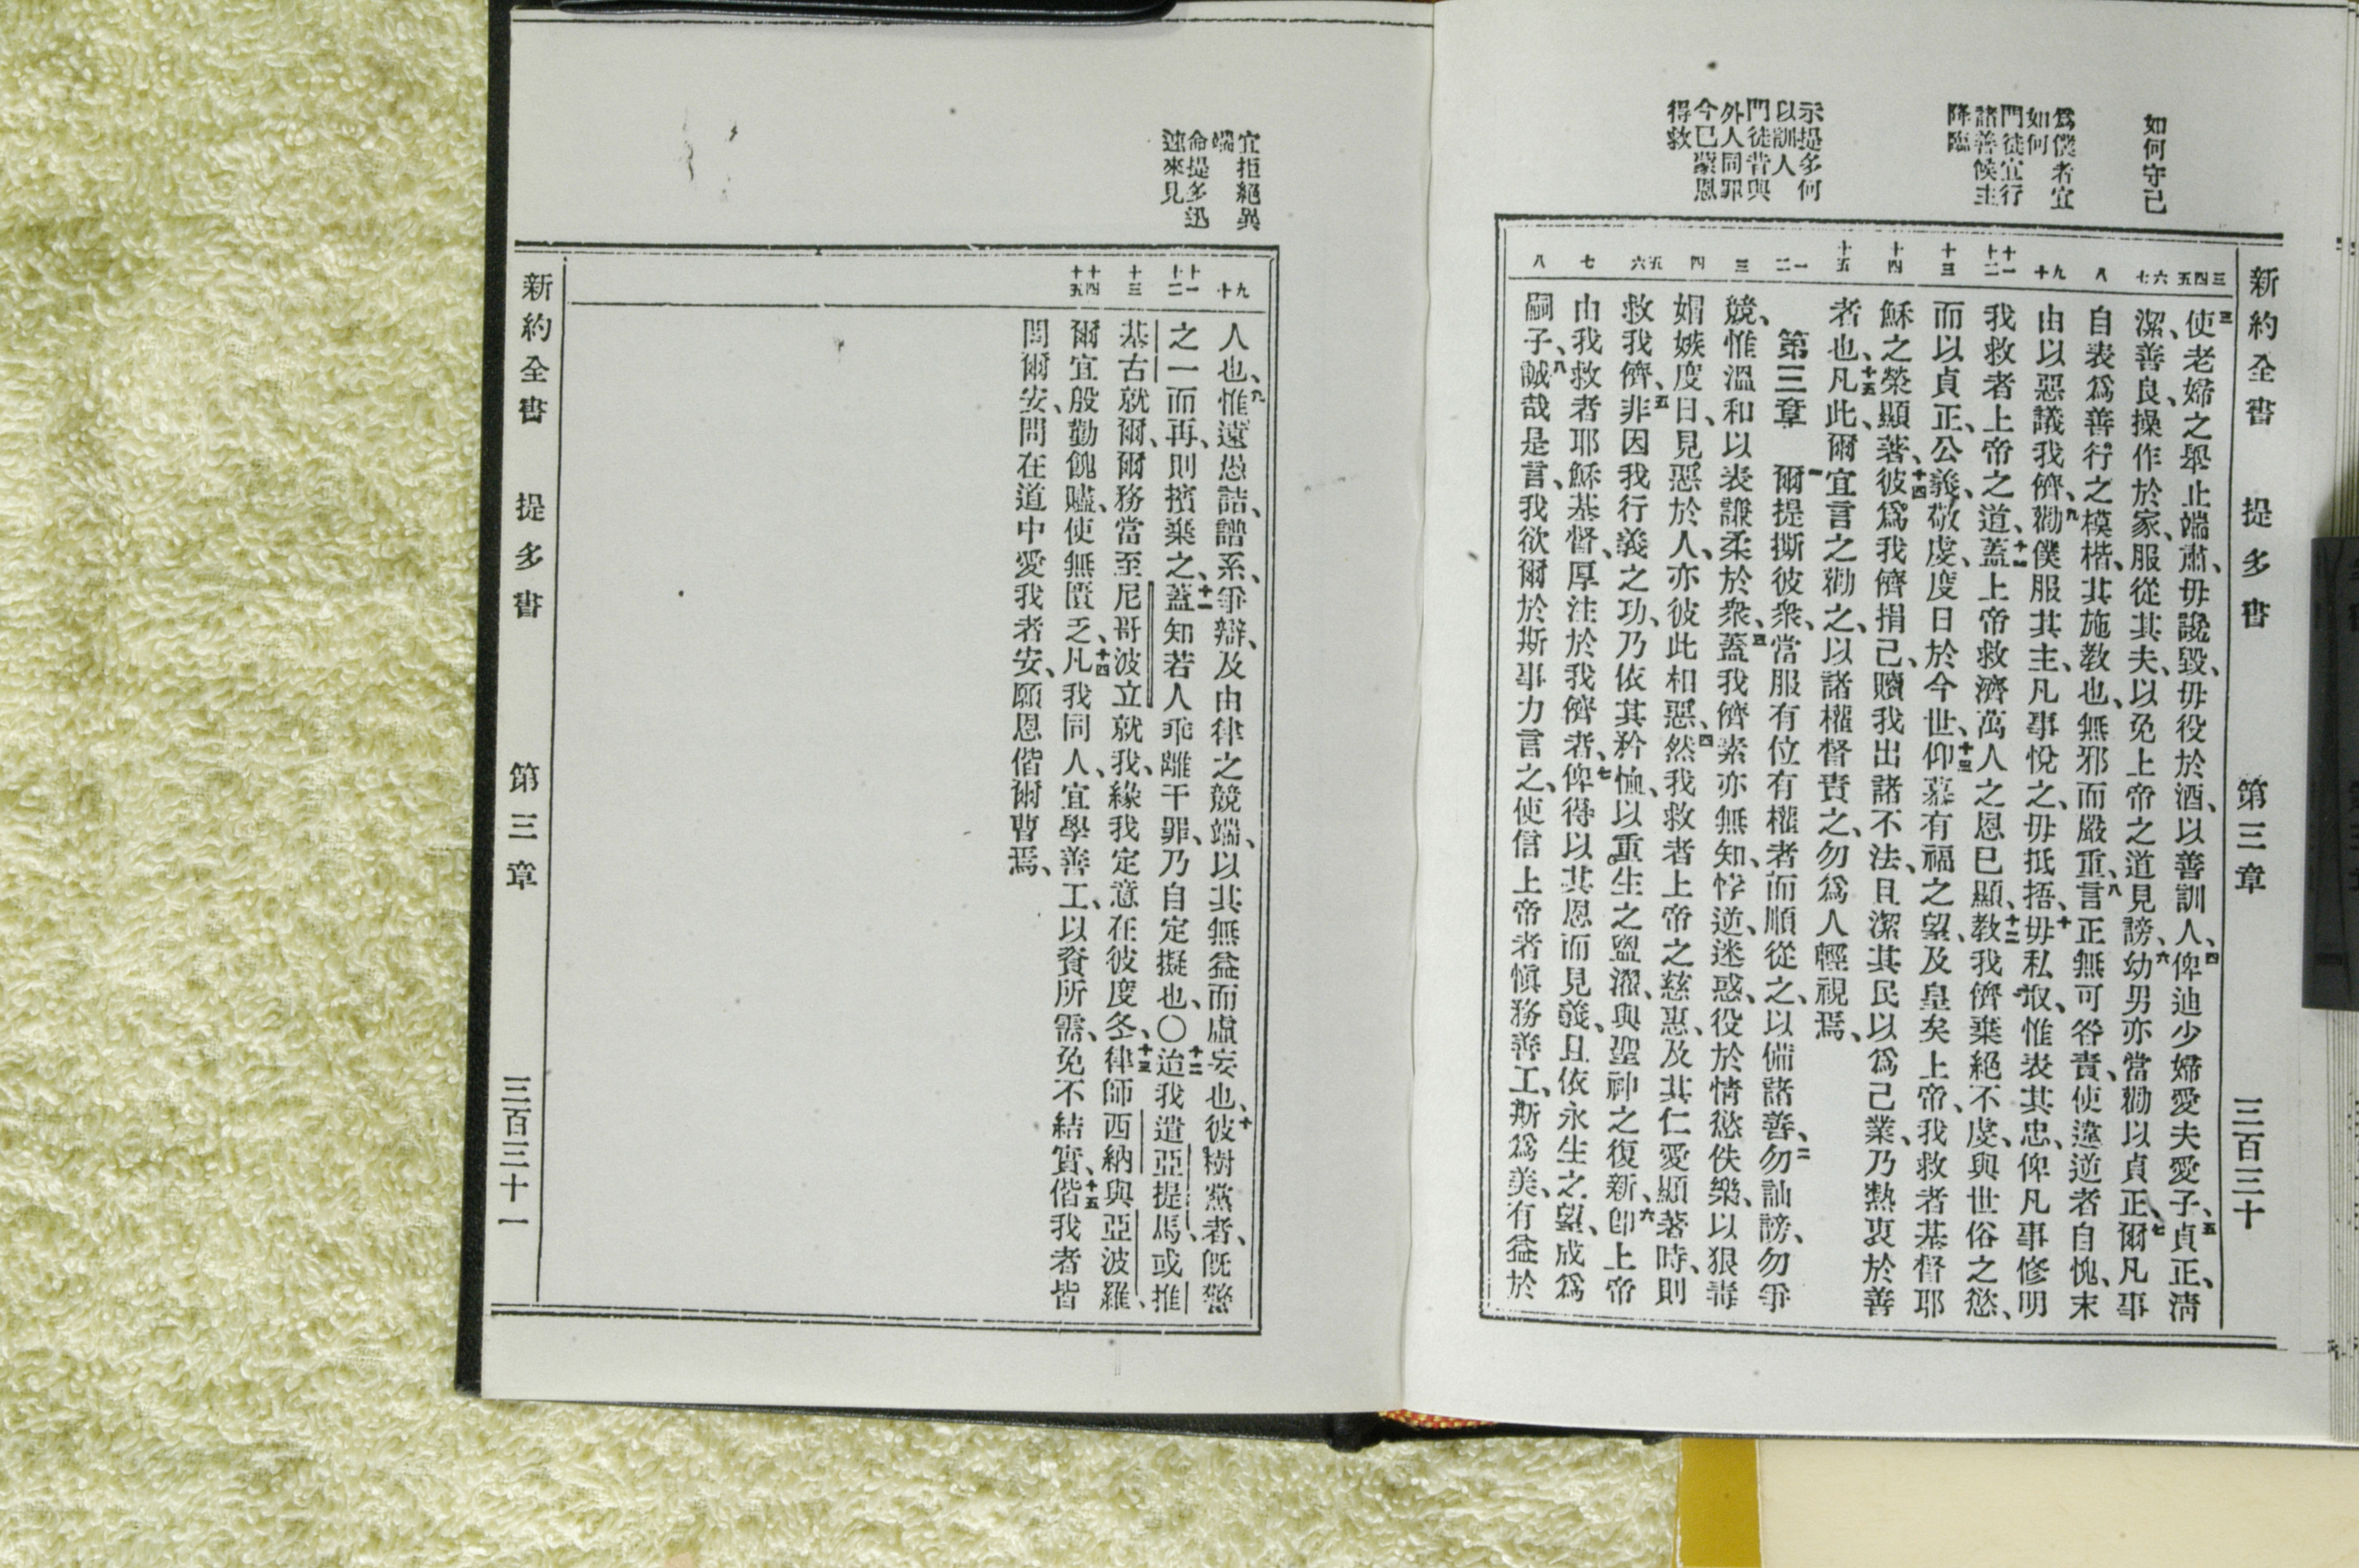 如何守己
爲僕者宜
如何
門徒宜行
諸善候主
降臨
示提多何
以訓人
門徒昔與
外人同罪
今已蒙恩
得救
新約全書 提多書 第三章 三百三十
三 四 五 六 七 八 九 十 十一 十二 十三 十四 十五 一 二 三 四 五 六 七 八
三使老婦之舉止端肅、毋讒毀、毋役於酒、以善訓人、四俾迪少婦愛夫愛子、五貞正、清
潔、善良、操作於家、服從其夫、以免上帝之道見謗、六幼男亦當勸以貞正、七爾凡事
自表爲善行之模楷、其施教也、無邪而嚴重、八言正無可咎責、使違逆者自愧、末
由以惡議我儕、九勸僕服其主、凡事悅之、毋抵捂、十毋私取、惟表其忠、俾凡事修明
我救者上帝之道、十一蓋上帝救濟萬人之恩已顯、十二教我儕棄絕不虔、與世俗之慾、
而以貞正、公義、敬虔、度日於今世、十三仰慕有福之望、及皇矣上帝、我救者基督耶
穌之榮顯著、十四彼爲我儕捐己、贖我出諸不法、且潔其民以爲己業、乃熱衷於善
者也、十五凡此、爾宜言之勸之、以諸權督責之、勿爲人輕視焉、
第三章 一爾提撕彼衆、當服有位有權者而順從之、以備諸善、二勿訕謗、勿爭
競、惟溫和以表謙柔於衆、三蓋我儕素亦無知、悖逆、迷惑、役於情慾佚樂、以狠毒
媢嫉度日、見惡於人、亦彼此相惡、四然我救者上帝之慈惠、及其仁愛顯著時、則
救我儕、五非因我行義之功、乃依其矜恤、以重生之盥濯、與聖神之復新、六卽上帝
由我救者耶穌基督、厚注於我儕者、七俾得以其恩而見義、且依永生之望、成爲
嗣子、八誠哉是言、我欲爾於斯事力言之、使信上帝者愼務善工、斯爲美、有益於
宜拒絕異
端
命提多迅
速來見
九 十 十一 十二 十三 十四 十五
人也、九惟遠愚詰、譜系、爭辯、及由律之競端、以其無益而虛妄也、十彼樹黨者、旣警
之一而再、則擯棄之、十一蓋知若人乖離干罪、乃自定擬也、〇十二迨我遣亞提馬、或推
基古就爾、爾務當至尼哥波立就我、緣我定意在彼度冬、十三律師西納與亞波羅、
爾宜殷勤餽贐、使無匱乏、十四凡我同人、宜學善工、以資所需、免不結實、十五偕我者皆
問爾安、問在道中愛我者安、願恩偕爾曹焉、
新約全書 提多書 第三章 三百三十一